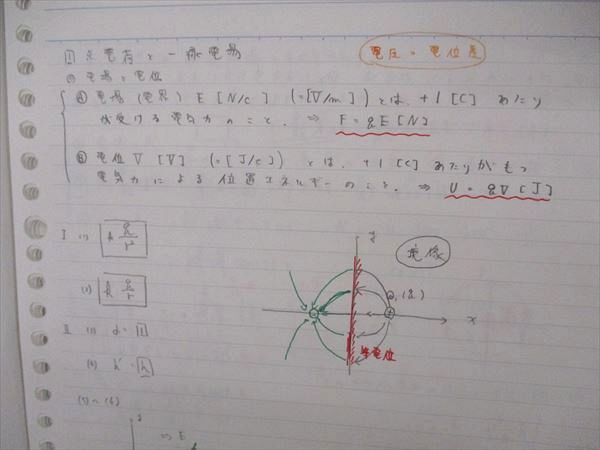 電圧・電位差
① 点電荷と一様電場
◎ 電場と電位
Ⓐ 電場(電界) E [N/C] (=[V/m])とは、+1[C]あたり
が受ける電気力のこと. ⇒ F=qE[N]
Ⓑ 電位 V [V] (=[J/C]) とは、+1[C]あたりがもつ
電気力による位置エネルギーのこと. ⇒ U=qV[J]
I (1) k q/r²
(2) k q/r
II (1) d=
(2)
(3)~(6)
鏡像
y
(q)
+
-
x
等電位
y
⇒ E